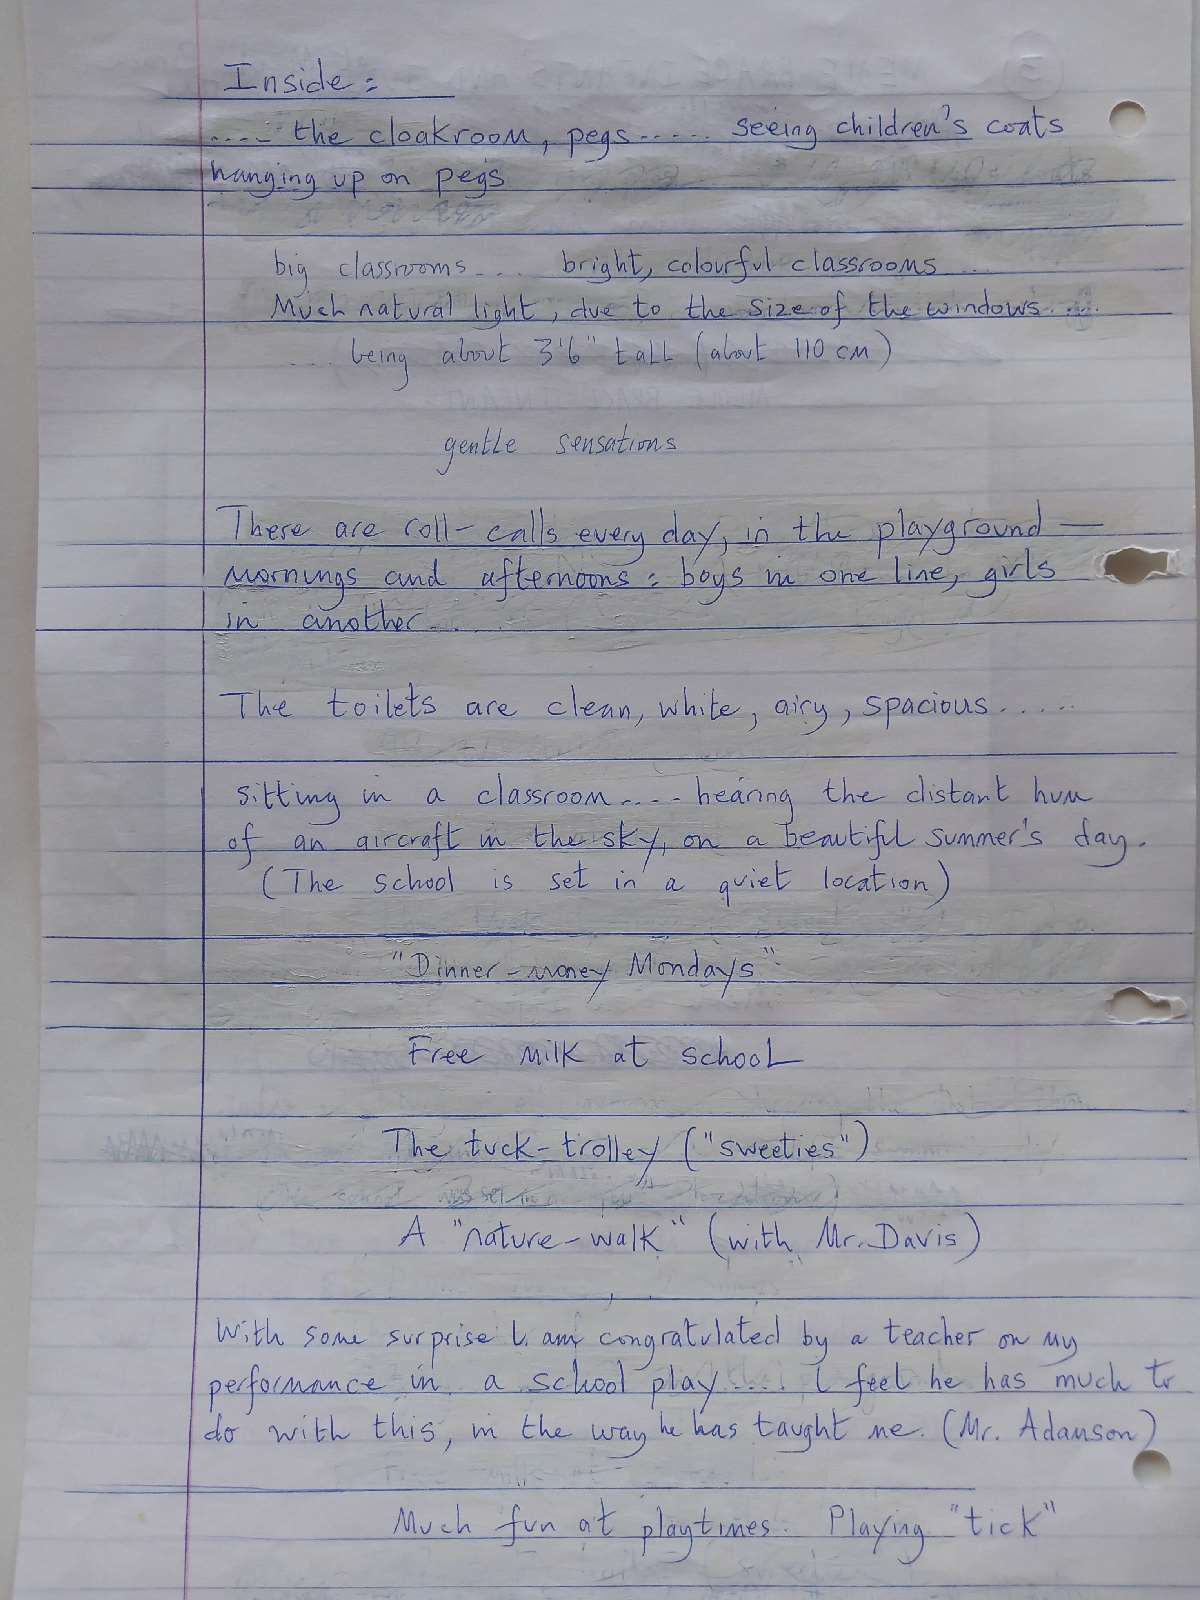 Inside :
.... the cloakroom, pegs ...... seeing children's coats
hanging up on pegs
big classrooms.... bright, colourful classrooms ....
Much natural light, due to the size of the windows .....
.... being about 3'6" tall (about 110 cm)
gentle sensations
There are roll-calls every day, in the playground —
mornings and afternoons : boys in one line, girls
in another....
The toilets are clean, white, airy, spacious .....
Sitting in a classroom .... hearing the distant hum
of an aircraft in the sky, on a beautiful summer's day.
(The school is set in a quiet location)
"Dinner-money Mondays"
Free milk at school
The tuck-trolley ("sweeties")
A "nature-walk" (with Mr. Davis)
With some surprise I am congratulated by a teacher on my
performance in a school play .... I feel he has much to
do with this, in the way he has taught me. (Mr. Adamson)
Much fun at playtimes. Playing "tick"